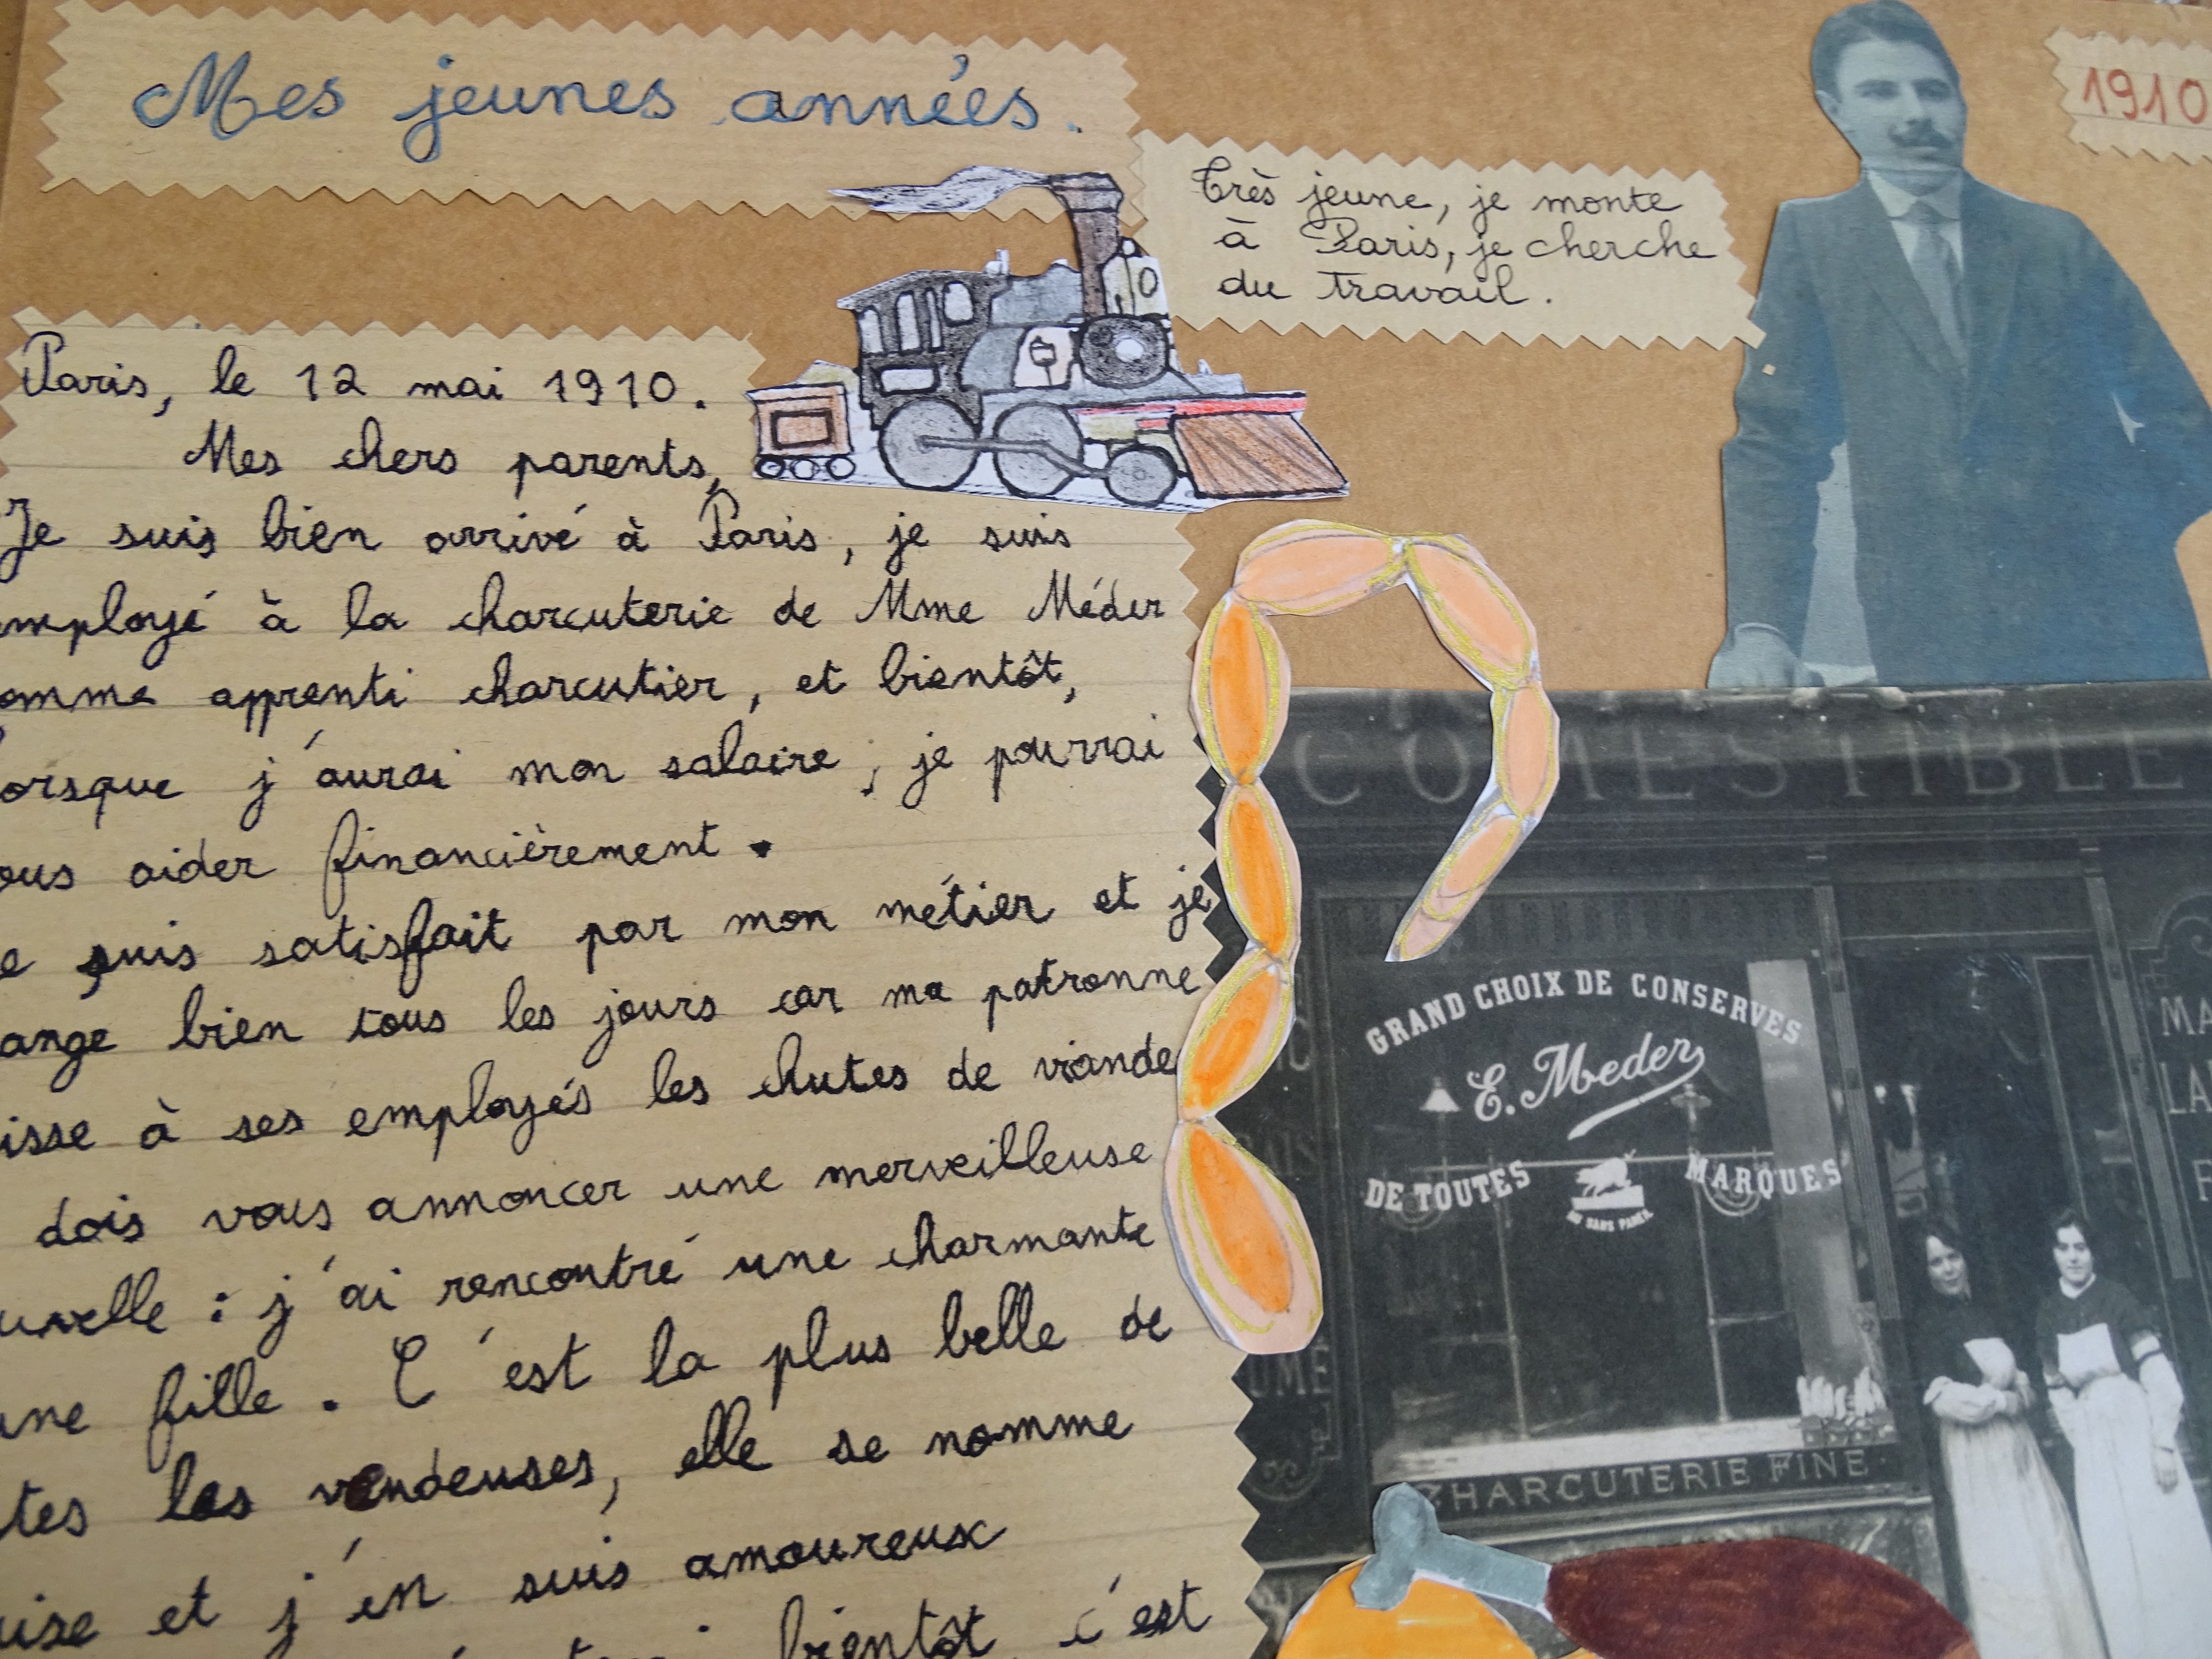 Mes jeunes années.
1910
Très jeune, je monte
à Paris, je cherche
du travail.
Paris, le 12 mai 1910.
Mes chers parents,
Je suis bien arrivé à Paris, je suis
employé à la charcuterie de Mme Méder
omme apprenti charcutier, et bientôt,
lorsque j'aurai mon salaire, je pourrai
ous aider financièrement.
e suis satisfait par mon métier et je
ange bien tous les jours car ma patronne
isse à ses employés les chutes de viande
dois vous annoncer une merveilleuse
uvelle : j'ai rencontré une charmante
une fille. C'est la plus belle de
tes les vendeuses, elle se nomme
ise et j'en suis amoureux
bientôt, c'est
COMESTIBLE
GRAND CHOIX DE CONSERVES
E. Meder
DE TOUTES MARQUES
CHARCUTERIE FINE
MA
LA
F
UME